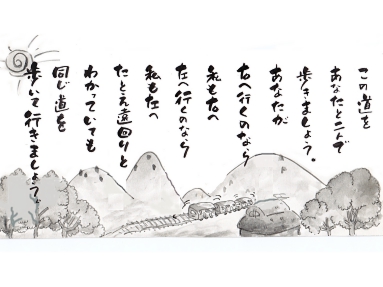 この道を
あなたと二人で
歩きましょう。
あなたが
右へ行くのなら
私も右へ
左へ行くのなら
私も左へ
たとえ遠回りと
わかっていても
同じ道を
歩いて行きましょう。